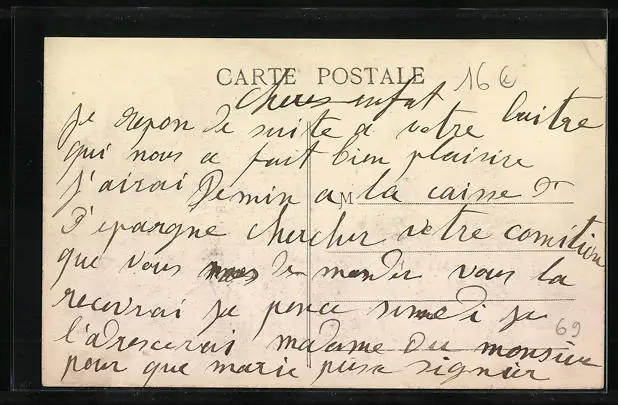 CARTE POSTALE 16 €
Cheres enfat
je repon de suite a votre laitre
qui nous a fait bien plaisire
j'airai Demin a la caisse D
M
D'epargne chercher votre comition
que vous de mander vous la
recevrai je pence samedi je
l'adrescerai madame Ou monsieur
69
pour que marie puise signier